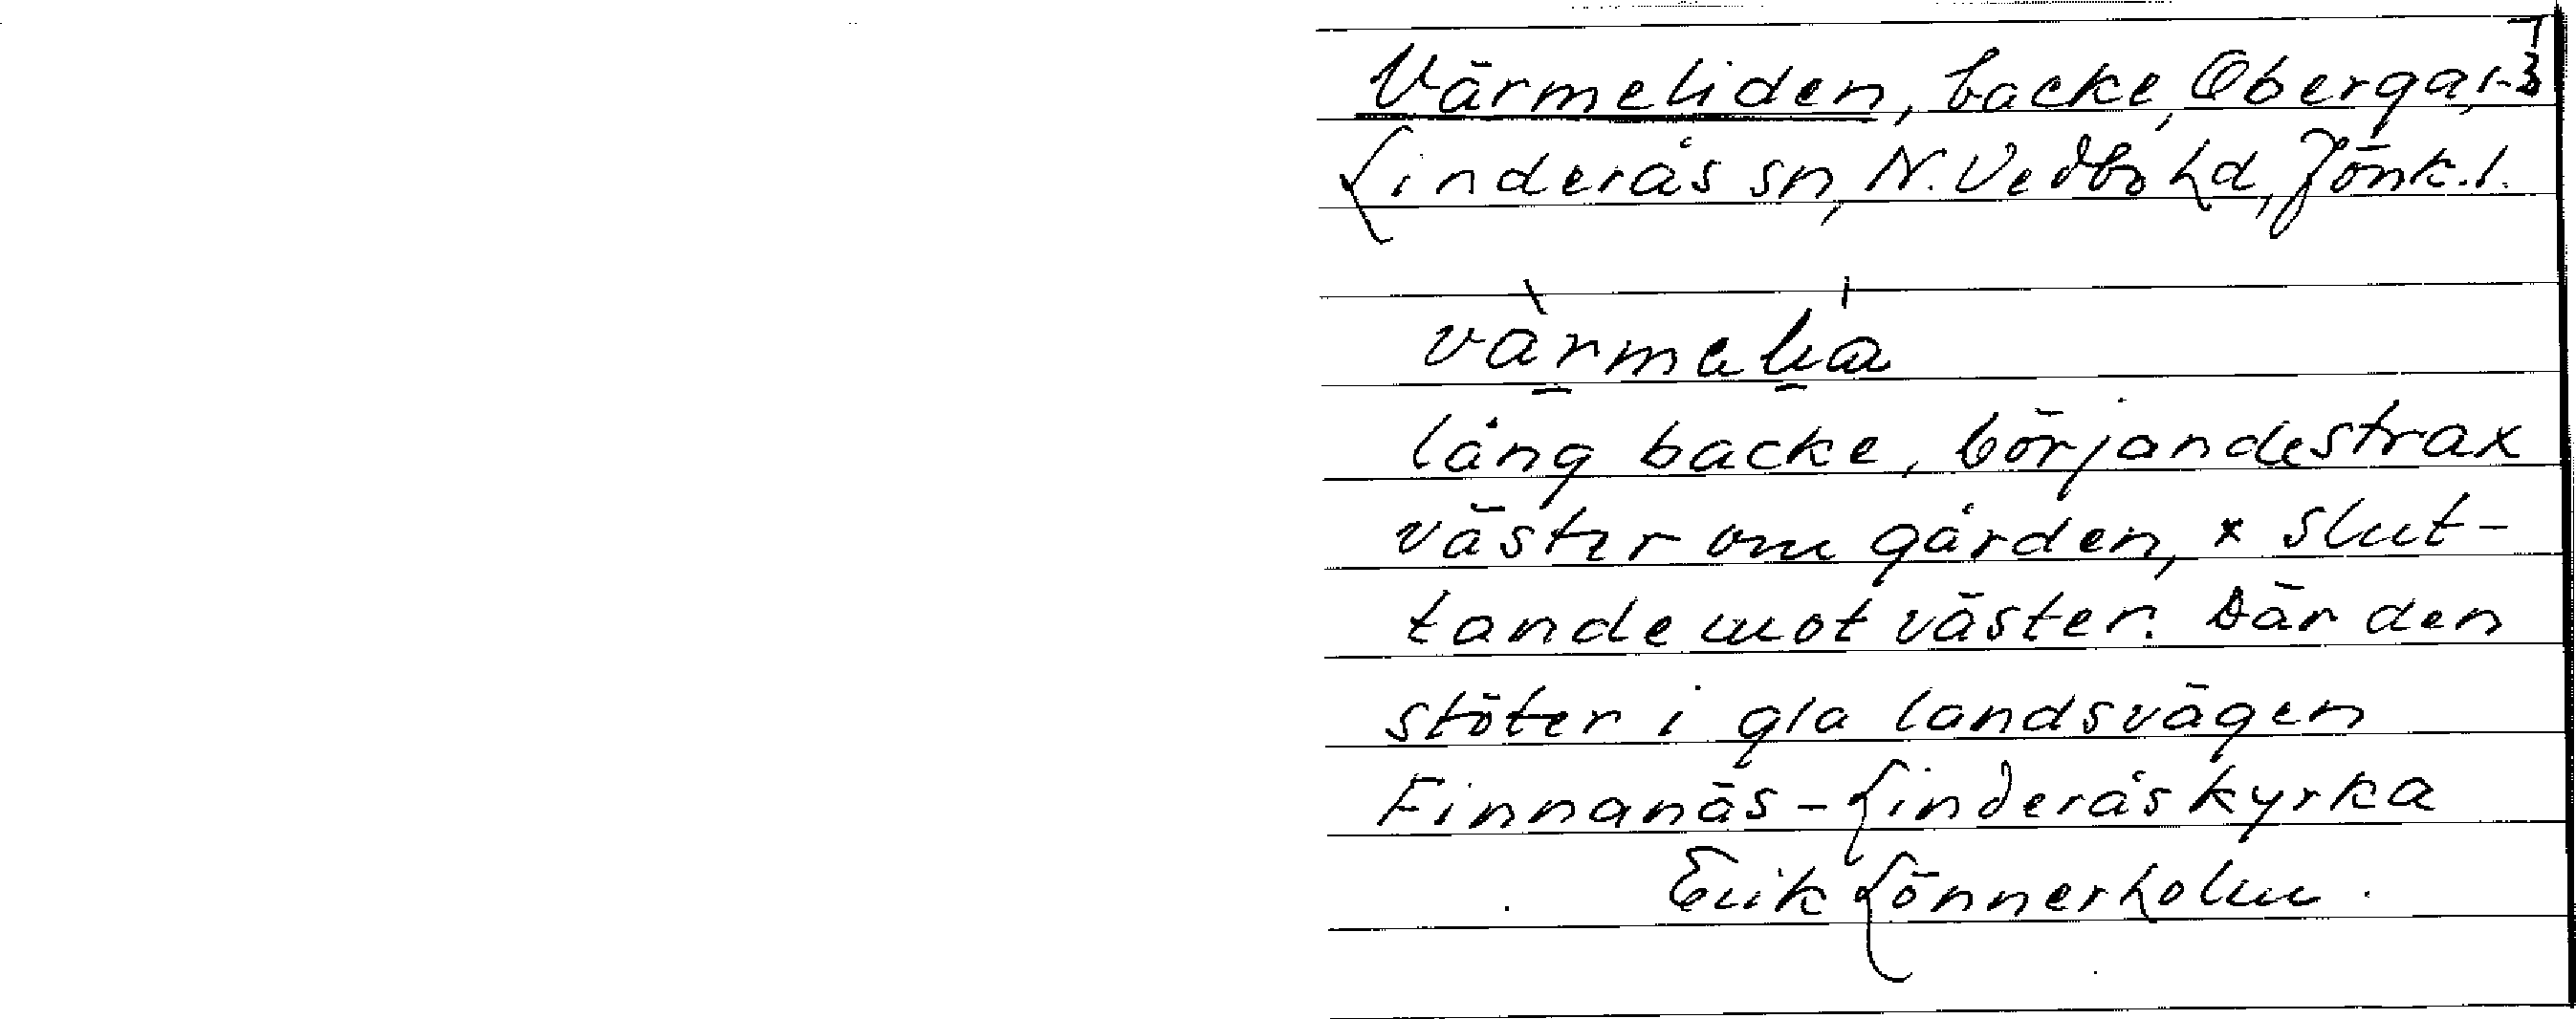 Värmeliden, backe, Oberga, 1-3
Linderås sn, N. Vedbo hd, Jönk. l.
värmelia
lång backe, börjande strax
väster om gården, x slut-
tande mot väster. Där den
stöter i gla landsvägen
Finnanäs - Linderås kyrka
Erik Lönnerholm.